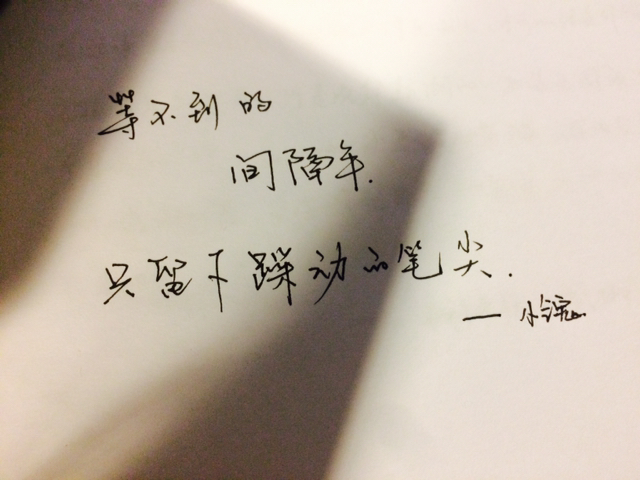 等不到的
间隔年.
只留下躁动的笔尖.
— 小